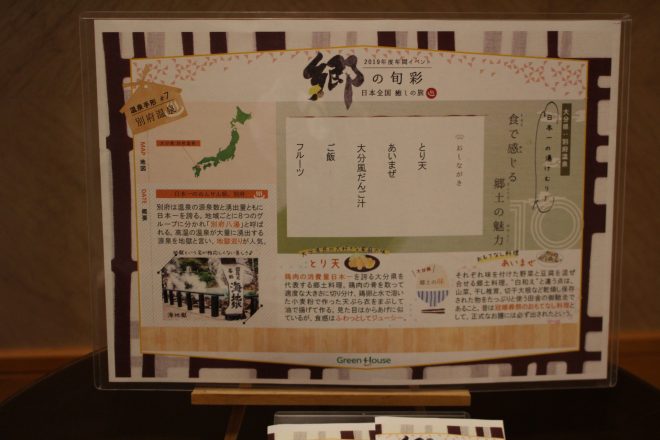 2019年度年間イベント
郷の旬彩
日本全国 癒しの旅
温泉手形 #7
別府温泉
MAP 地図
大分県 別府温泉
DATE 概要
日本一のおんせん県、別府
別府は温泉の源泉数と湧出量ともに
日本一を誇る。地域ごとに8つのグル
ープに分かれ「別府八湯」と呼ば
れる。高温の温泉が大量に湧出する
源泉を地獄と言い、地獄巡りが人気。
海地獄
大分県:別府温泉
日本一の湯けむり
食で感じる
郷土の魅力
10
おしながき
とり天
あいまぜ
大分風だんご汁
ご飯
フルーツ
とり天
鶏肉の消費量日本一を誇る大分県を
代表する郷土料理。鶏肉の骨を取って
適度な大きさに切り分け、鶏卵と水で溶い
た小麦粉で作った天ぷら衣をまぶして
油で揚げて作る。見た目はからあげに似
ているが、食感はふわっとしてジューシー。
大分県
郷土の味
おもてなし料理
あいまぜ
それぞれ味を付けた野菜と豆腐を混ぜ
合せる郷土料理。"白和え"と違う点は、
山菜、干し椎茸、切干大根など乾燥し保存
された物をたっぷりと使う田舎の御馳走で
あること。昔は冠婚葬祭のおもてなし料理と
して、正式なお膳には必ず出されたという。
Green House